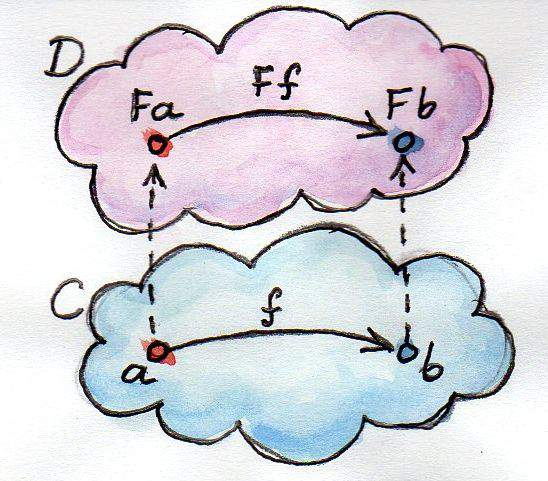 D
Fa
Ff
Fb
C
f
a
b